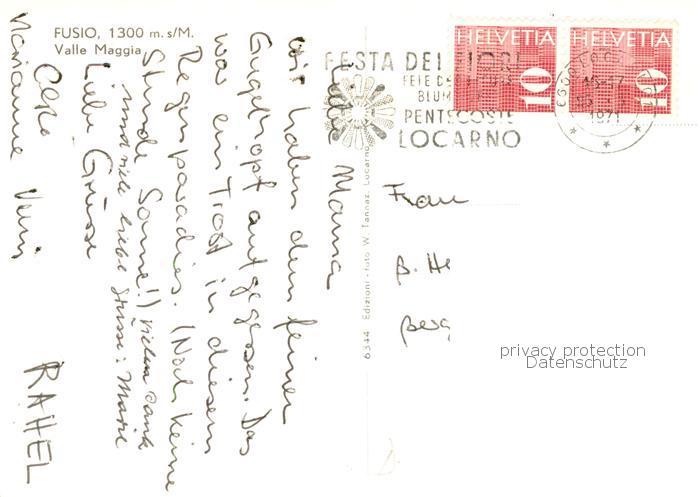 FUSIO, 1300 m. s/M.
Valle Maggia
HELVETIA
10
HELVETIA
10
FESTA DEI FIORI
BLUM
PENTECOSTE
LOCARNO
1971
6344 Edizioni - foto W. Tannaz, Locarno
Liebe Mama
wir haben den feinen
Gugelhopf aufgegessen. Das
war ein Trost in diesem
Regenparadies. (Noch keine
Stunde Sonne!) Vielen Dank
und viele liebe Grüsse: Marie
Liebe Grüsse
Marianne
RAHEL
Frau
B. He
Berg
privacy protection
Datenschutz